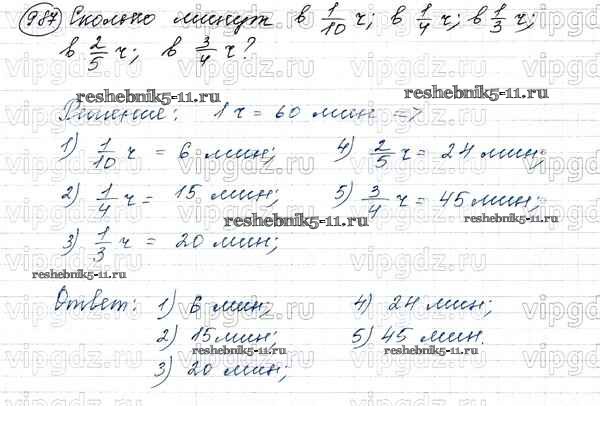 987 Сколько минут в 1/10 ч; в 1/4 ч; в 1/3 ч;
в 2/5 ч; в 3/4 ч?
reshebnik5-11.ru reshebnik5-11.ru
Решение: 1 ч = 60 мин =>
1) 1/10 ч = 6 мин; 4) 2/5 ч = 24 мин;
2) 1/4 ч = 15 мин; 5) 3/4 ч = 45 мин;
reshebnik5-11.ru reshebnik5-11.ru
3) 1/3 ч = 20 мин;
reshebnik5-11.ru
Ответ: 1) 6 мин; 4) 24 мин;
2) 15 мин; 5) 45 мин.
reshebnik5-11.ru reshebnik5-11.ru
3) 20 мин;
vipgdz.ru